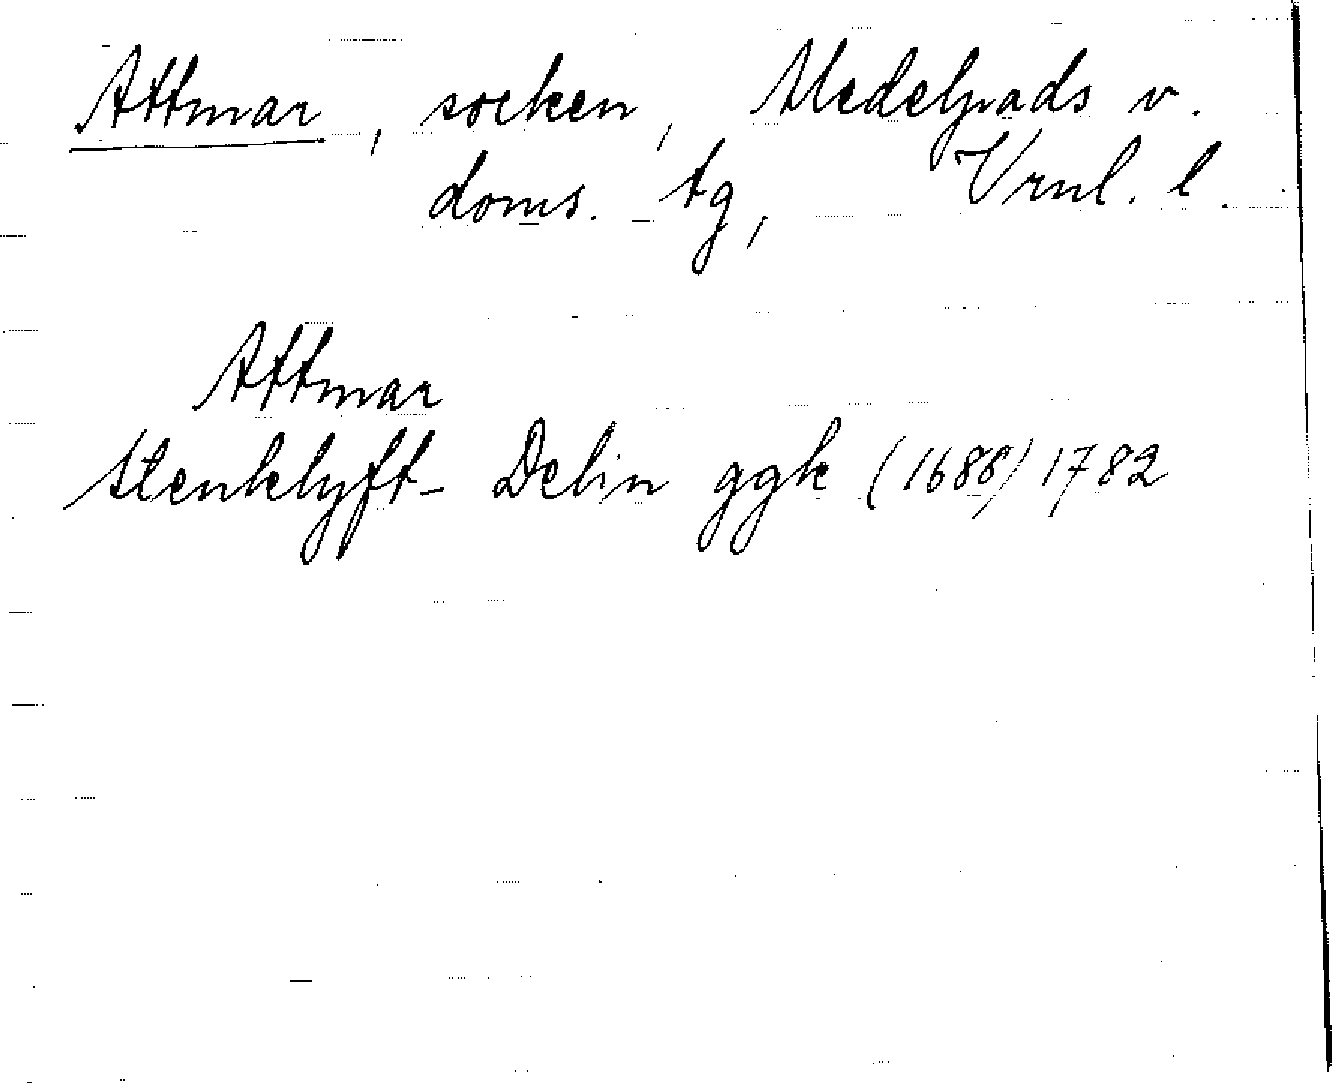 Attmar, socken, Medelpads v.
doms. tg, Vrnl. l.
Attmar
Stenklyft- Delin ggk (1688) 1782